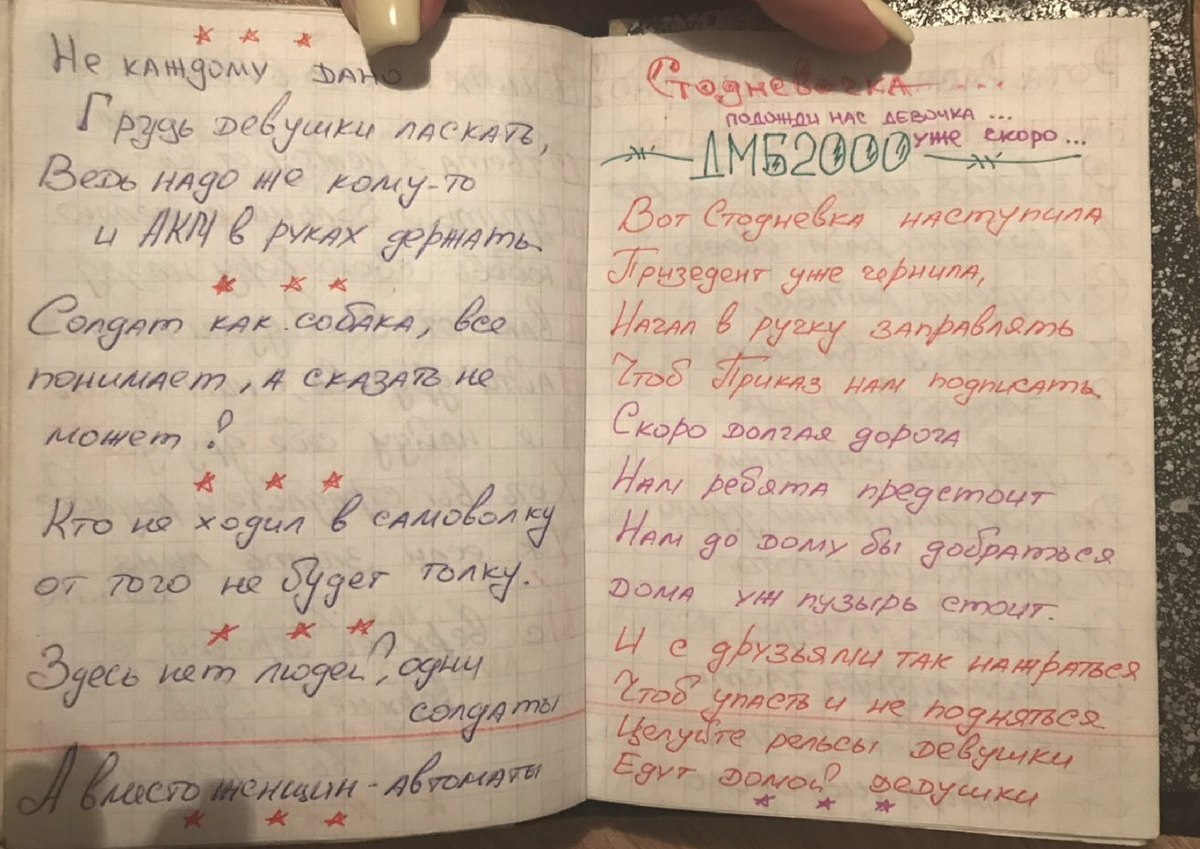 * * *
Не каждому дано
Грудь девушки ласкать,
Ведь надо же кому-то
и АКМ в руках держать.
* * *
Солдат как собака, все
понимает, а сказать не
может!
* * *
Кто не ходил в самоволку
от того не будет толку.
* * *
Здесь нет людей, одни
солдаты
А вместо женщин - автоматы
* * *
Стодневочка ...
подожди нас девочка ...
уже скоро ...
ДМБ2000
Вот Стодневка наступила
Призедент уже чернила,
Начал в ручку заправлять
Чтоб Приказ нам подписать.
Скоро долгая дорога
Нам ребята предстоит
Нам до дому бы добраться
Дома уж пузырь стоит.
И с друзьями так нажраться
Чтоб упасть и не подняться
Целуйте рельсы девушки
Едут домой дедушки
* * *